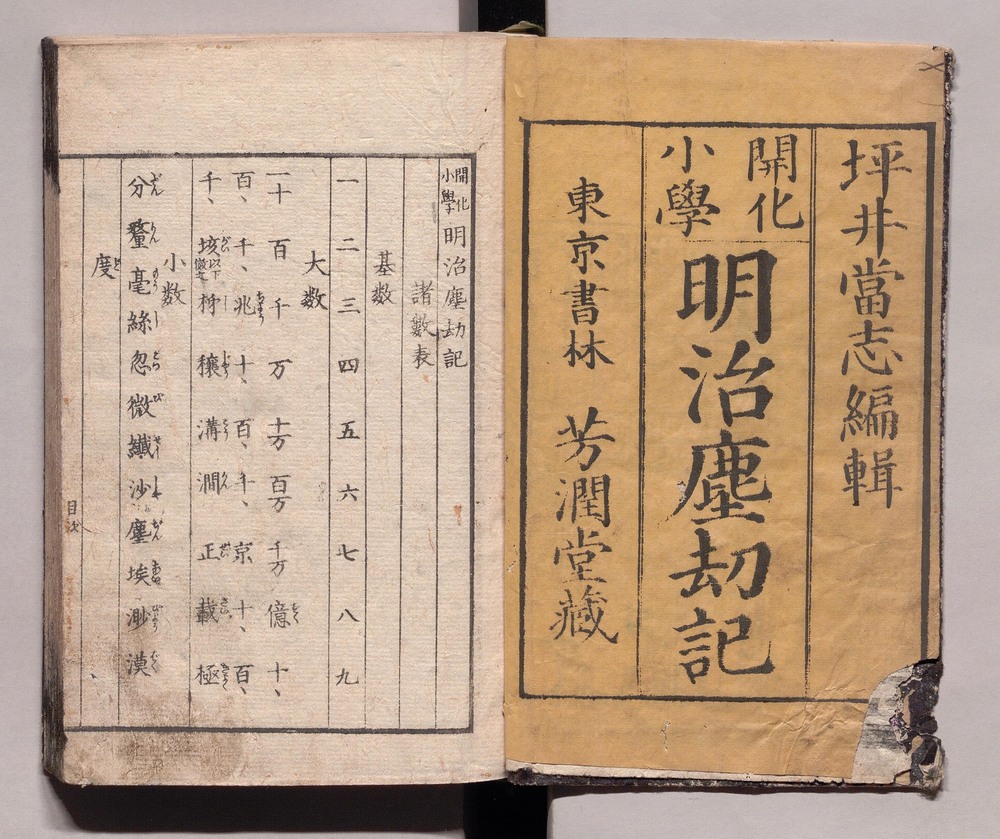 坪井當志編輯
開化
小學
明治塵劫記
東京書林 芳潤堂藏
開化
小學
明治塵劫記
諸數表
基数
一 二 三 四 五 六 七 八 九
大数
一十 百 千 万 十万 百万 千万 億 十、
百、 千、 兆 十、 百、 千、 京 十、 百、
千、 垓 以下倣之 秭 穰 溝 澗 正 載 極
小数
分 釐 毫 絲 忽 微 纖 沙 塵 埃 渺 漠
度
目次